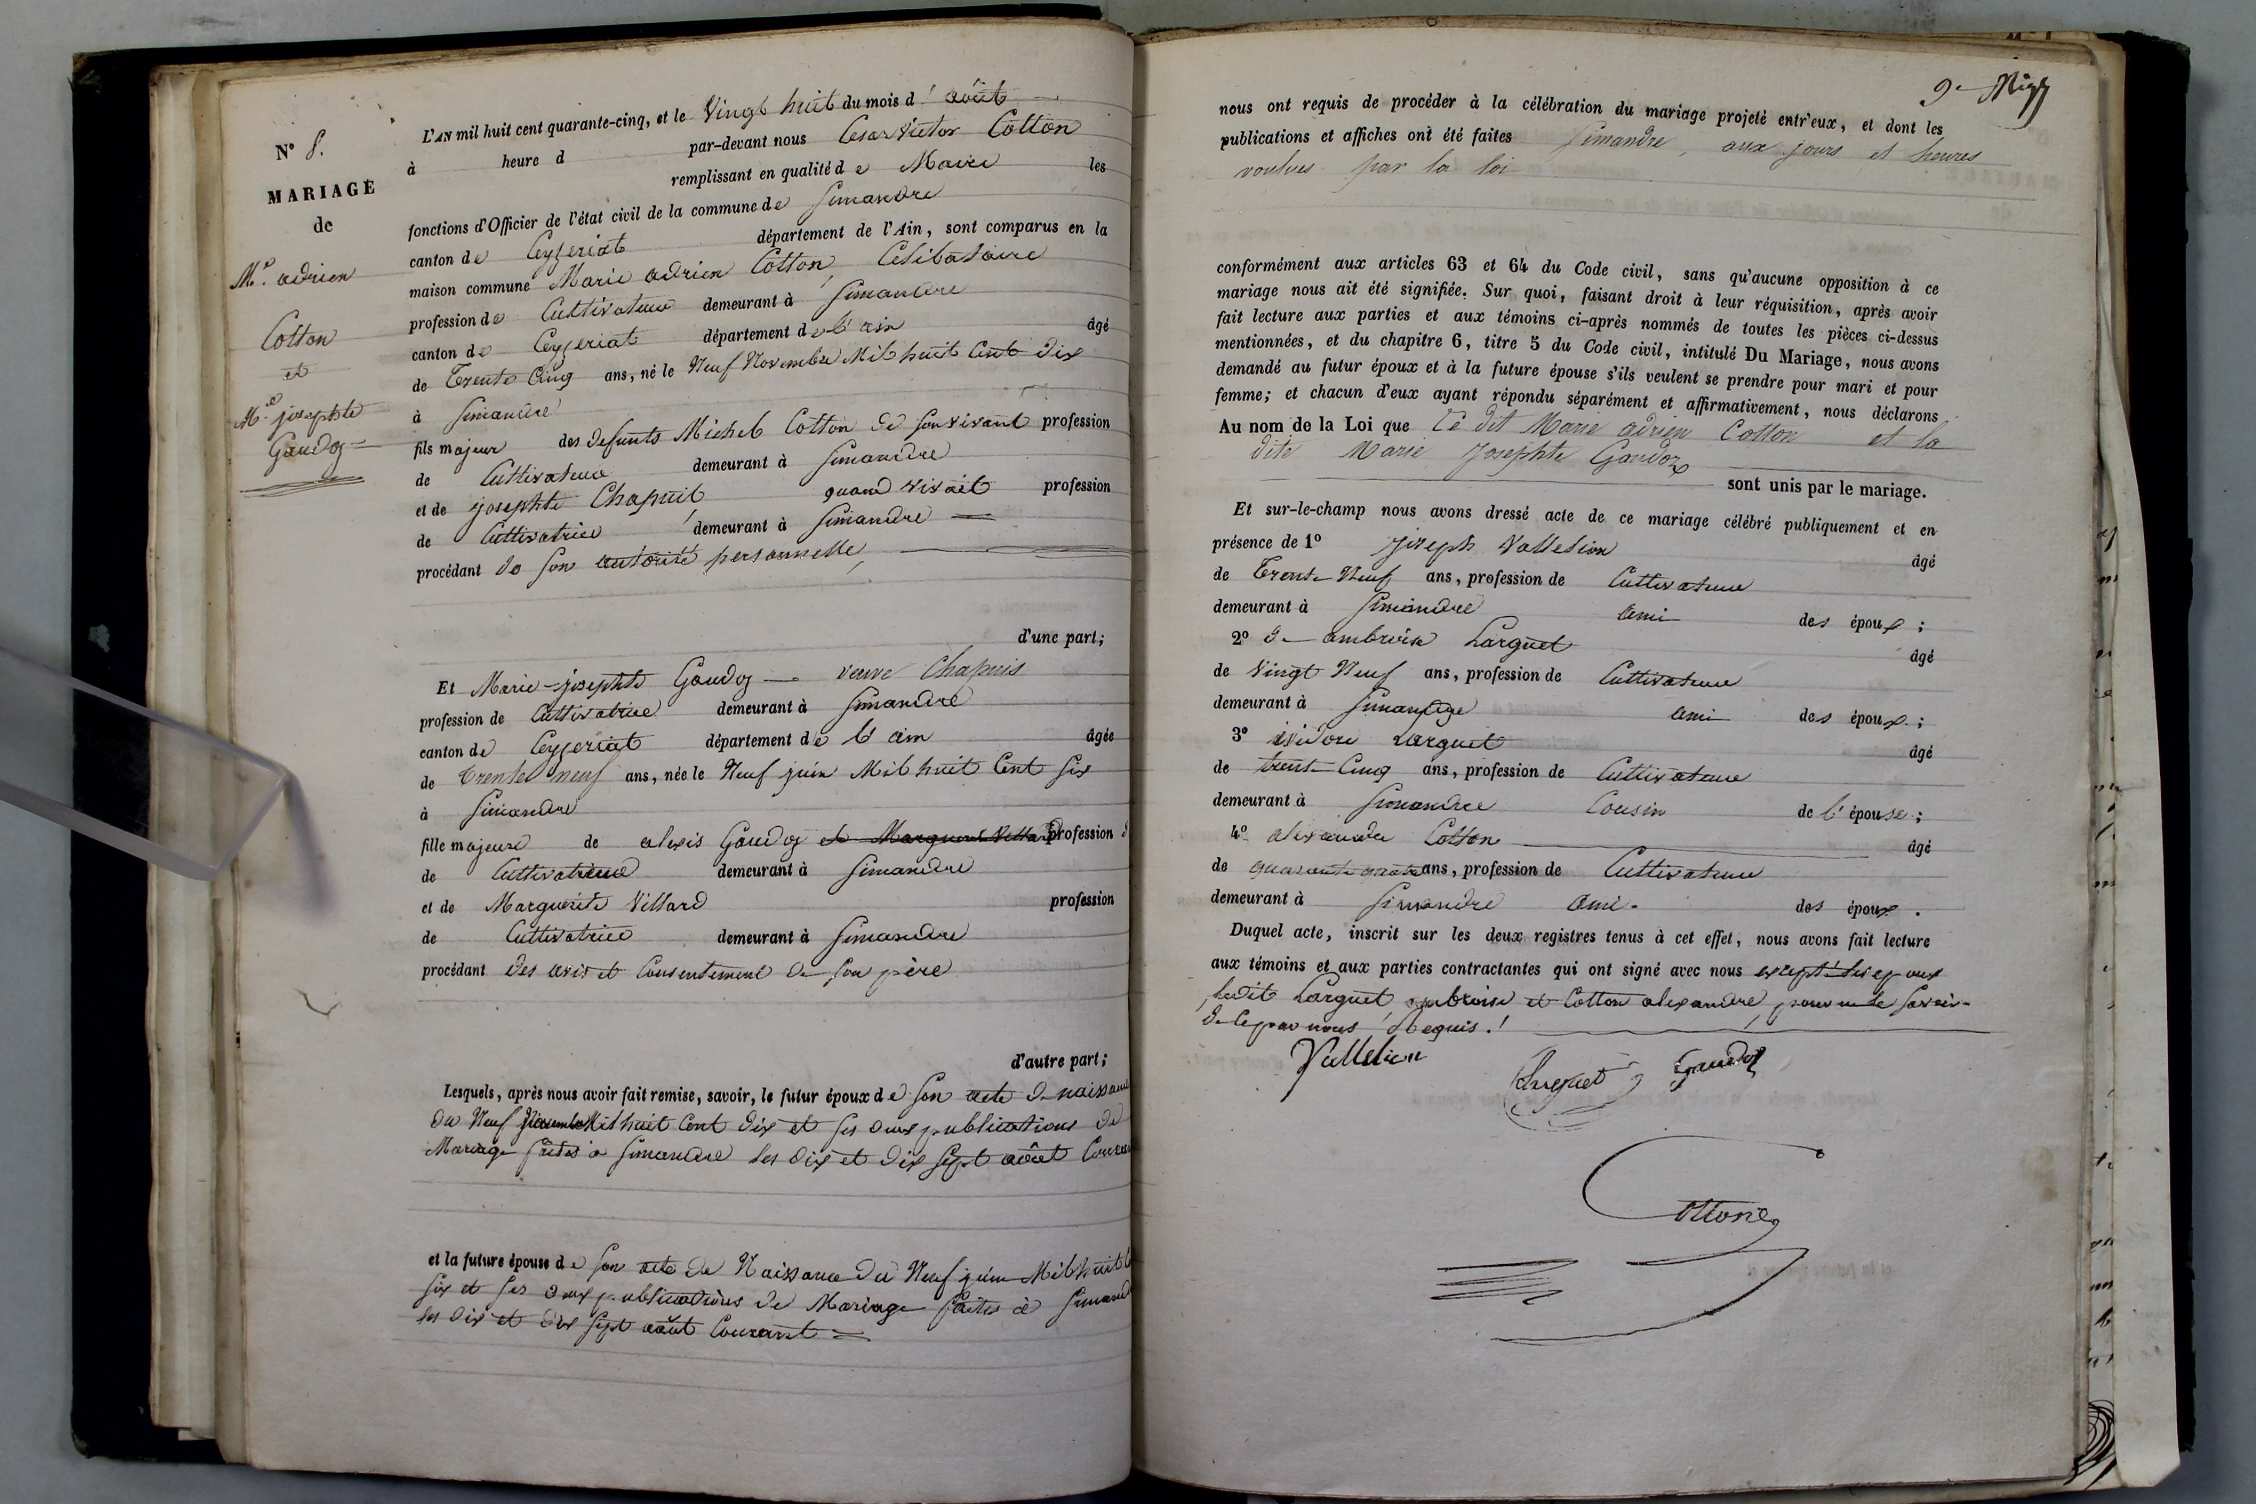 N° 8.
MARIAGE
de
M.ie adrien
Cotton
et
M.ie josephte
Gaudoz
L'AN mil huit cent quarante-cinq, et le Vingt huit du mois d' août
à heure d par-devant nous Cesar Victor Cotton
remplissant en qualité de Maire les
fonctions d'Officier de l'état civil de la commune de Simandre
canton de Ceyzeriat département de l'Ain, sont comparus en la
maison commune Marie adrien Cotton, Celibataire
profession de Cultivateur demeurant à Simandre
canton de Ceyzeriat département de l'ain âgé
de Trente Cinq ans, né le Neuf Novembre Mil huit Cent Dix
à Simandre
fils majeur des defunts Michel Cotton de son vivant profession
de Cultivateur demeurant à Simandre
et de josephte Chapuit quand vivait profession
de Cultivatrice demeurant à Simandre
procédant de son autorité personnelle,
d'une part;
Et Marie-josephte Gaudoz veuve Chapuis
profession de Cultivatrice demeurant à Simandre
canton de Ceyzeriat département de l'ain âgée
de trente neuf ans, née le Neuf juin Mil huit Cent Six
à Simandre
fille majeure de alexis Gaudoz et Marguerite Villard profession
de Cultivateur demeurant à Simandre
et de Marguerite Villard profession
de Cultivatrice demeurant à Simandre
procédant des avis et Consentement de son père
d'autre part;
Lesquels, après nous avoir fait remise, savoir, le futur époux de son acte de naissance
du Neuf Novembre Mil huit Cent Dix et ses deux publications de
Mariage faites à Simandre les dix et dix sept août Courant
et la future épouse de son acte de Naissance du Neuf juin Mil huit
six et ses deux publications de Mariage faites à Simandre
les dix et dix sept août Courant
nous ont requis de procéder à la célébration du mariage projeté entr'eux, et dont les
publications et affiches ont été faites Simandre, aux jours et heures
voulues par la loi
conformément aux articles 63 et 64 du Code civil, sans qu'aucune opposition à ce
mariage nous ait été signifiée. Sur quoi, faisant droit à leur réquisition, après avoir
fait lecture aux parties et aux témoins ci-après nommés de toutes les pièces ci-dessus
mentionnées, et du chapitre 6, titre 5 du Code civil, intitulé Du Mariage, nous avons
demandé au futur époux et à la future épouse s'ils veulent se prendre pour mari et pour
femme; et chacun d'eux ayant répondu séparément et affirmativement, nous déclarons
Au nom de la Loi que Le dit Marie adrien Cotton et la
dite Marie Josephte Gaudoz
sont unis par le mariage.
Et sur-le-champ nous avons dressé acte de ce mariage célébré publiquement et en
présence de 1° Joseph Vallelion
âgé
de Trente Neuf ans, profession de Cultivateur
demeurant à Simandre ami des époux;
2° de ambroise Larguet
âgé
de Vingt Neuf ans, profession de Cultivateur
demeurant à Simandre ami des époux;
3° isidore Larguet
âgé
de trente Cinq ans, profession de Cultivateur
demeurant à Simandre Cousin de l'épouse;
4° alexandre Cotton
âgé
de quarante quatre ans, profession de Cultivateur
demeurant à Simandre ami des époux.
Duquel acte, inscrit sur les deux registres tenus à cet effet, nous avons fait lecture
aux témoins et aux parties contractantes qui ont signé avec nous excepté les epoux
ledit Larguet ambroise et Cotton alexandre, pour ne le savoir
de ce par nous Requis.
Vallelion
Larguet Gaudoz
Cotton